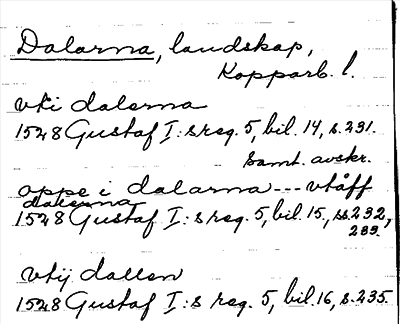 Dalarna, landskap,
Kopparb. l.
vti dalerna
1528 Gustaf I:s reg. 5, bil. 14, s. 231.
Samt. avskr.
oppe i dalarna --- vtåff
dalerna
1528 Gustaf I:s reg. 5, bil. 15, ss. 232,
233.
vtij dallen
1528 Gustaf I:s reg. 5, bil. 16, s. 235.